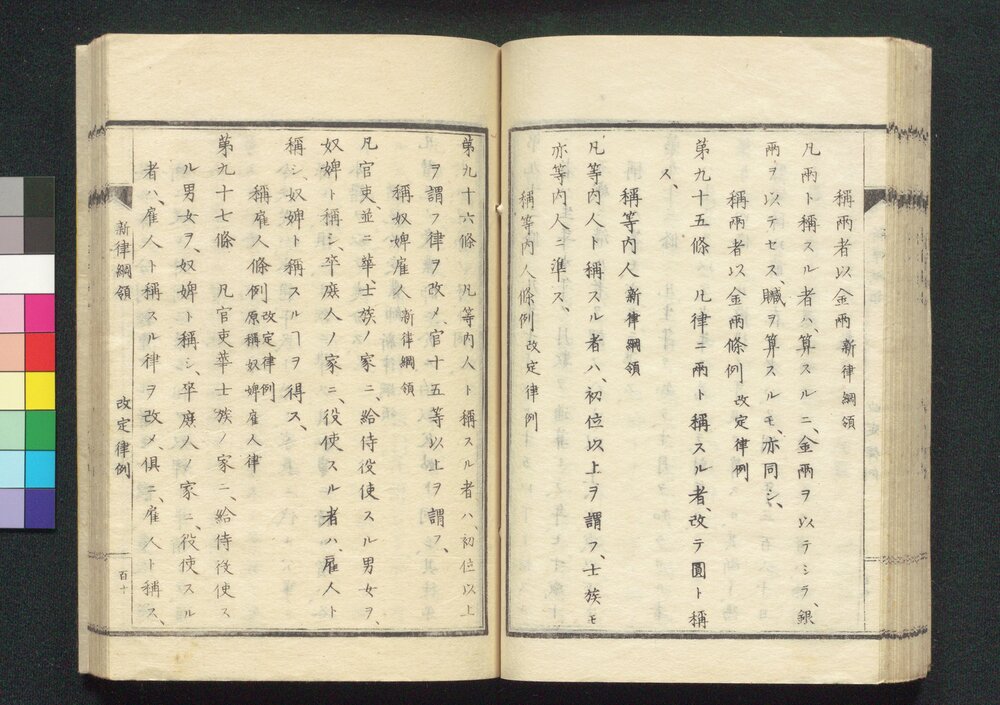 稱兩者以金兩 新律綱領
凡兩ト稱スル者ハ、算スルニ、金兩ヲ以テシラ、銀
兩ヲ以テセス、贓ヲ算スルモ、亦同シ、
稱兩者以金兩條例 改定律例
第九十五條 凡律ニ兩ト稱スル者、改テ圓ト稱
ス、
稱等内人 新律綱領
凡等内人ト稱スル者ハ、初位以上ヲ謂フ、士族モ
亦等内人ニ準ス、
稱等内人條例 改定律例
第九十六條 凡等内人ト稱スル者ハ、初位以上
ヲ謂フ律ヲ改メ、官十五等以上ヲ謂フ、
稱奴婢雇人 新律綱領
凡官吏、並ニ華、士族ノ家ニ、給侍役使スル男女ヲ、
奴婢ト稱シ、卒庶人ノ家ニ、役使スル者ハ、雇人ト
稱シ、奴婢ト稱スルヿヲ得ス、
稱雇人條例 改定律例 原稱奴婢雇人律
第九十七條 凡官吏華士族ノ家ニ、給侍役使ス
ル男女ヲ、奴婢ト稱シ、卒庶人ノ家ニ、役使スル
者ハ、雇人ト稱スル律ヲ改メ、俱ニ、雇人ト稱ス、
新律綱領 改定律例 百十